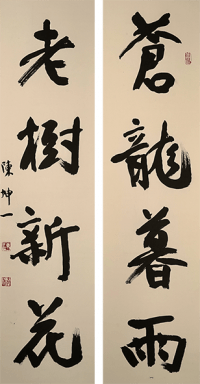 蒼龍暮雨
老樹新花
陳坤一